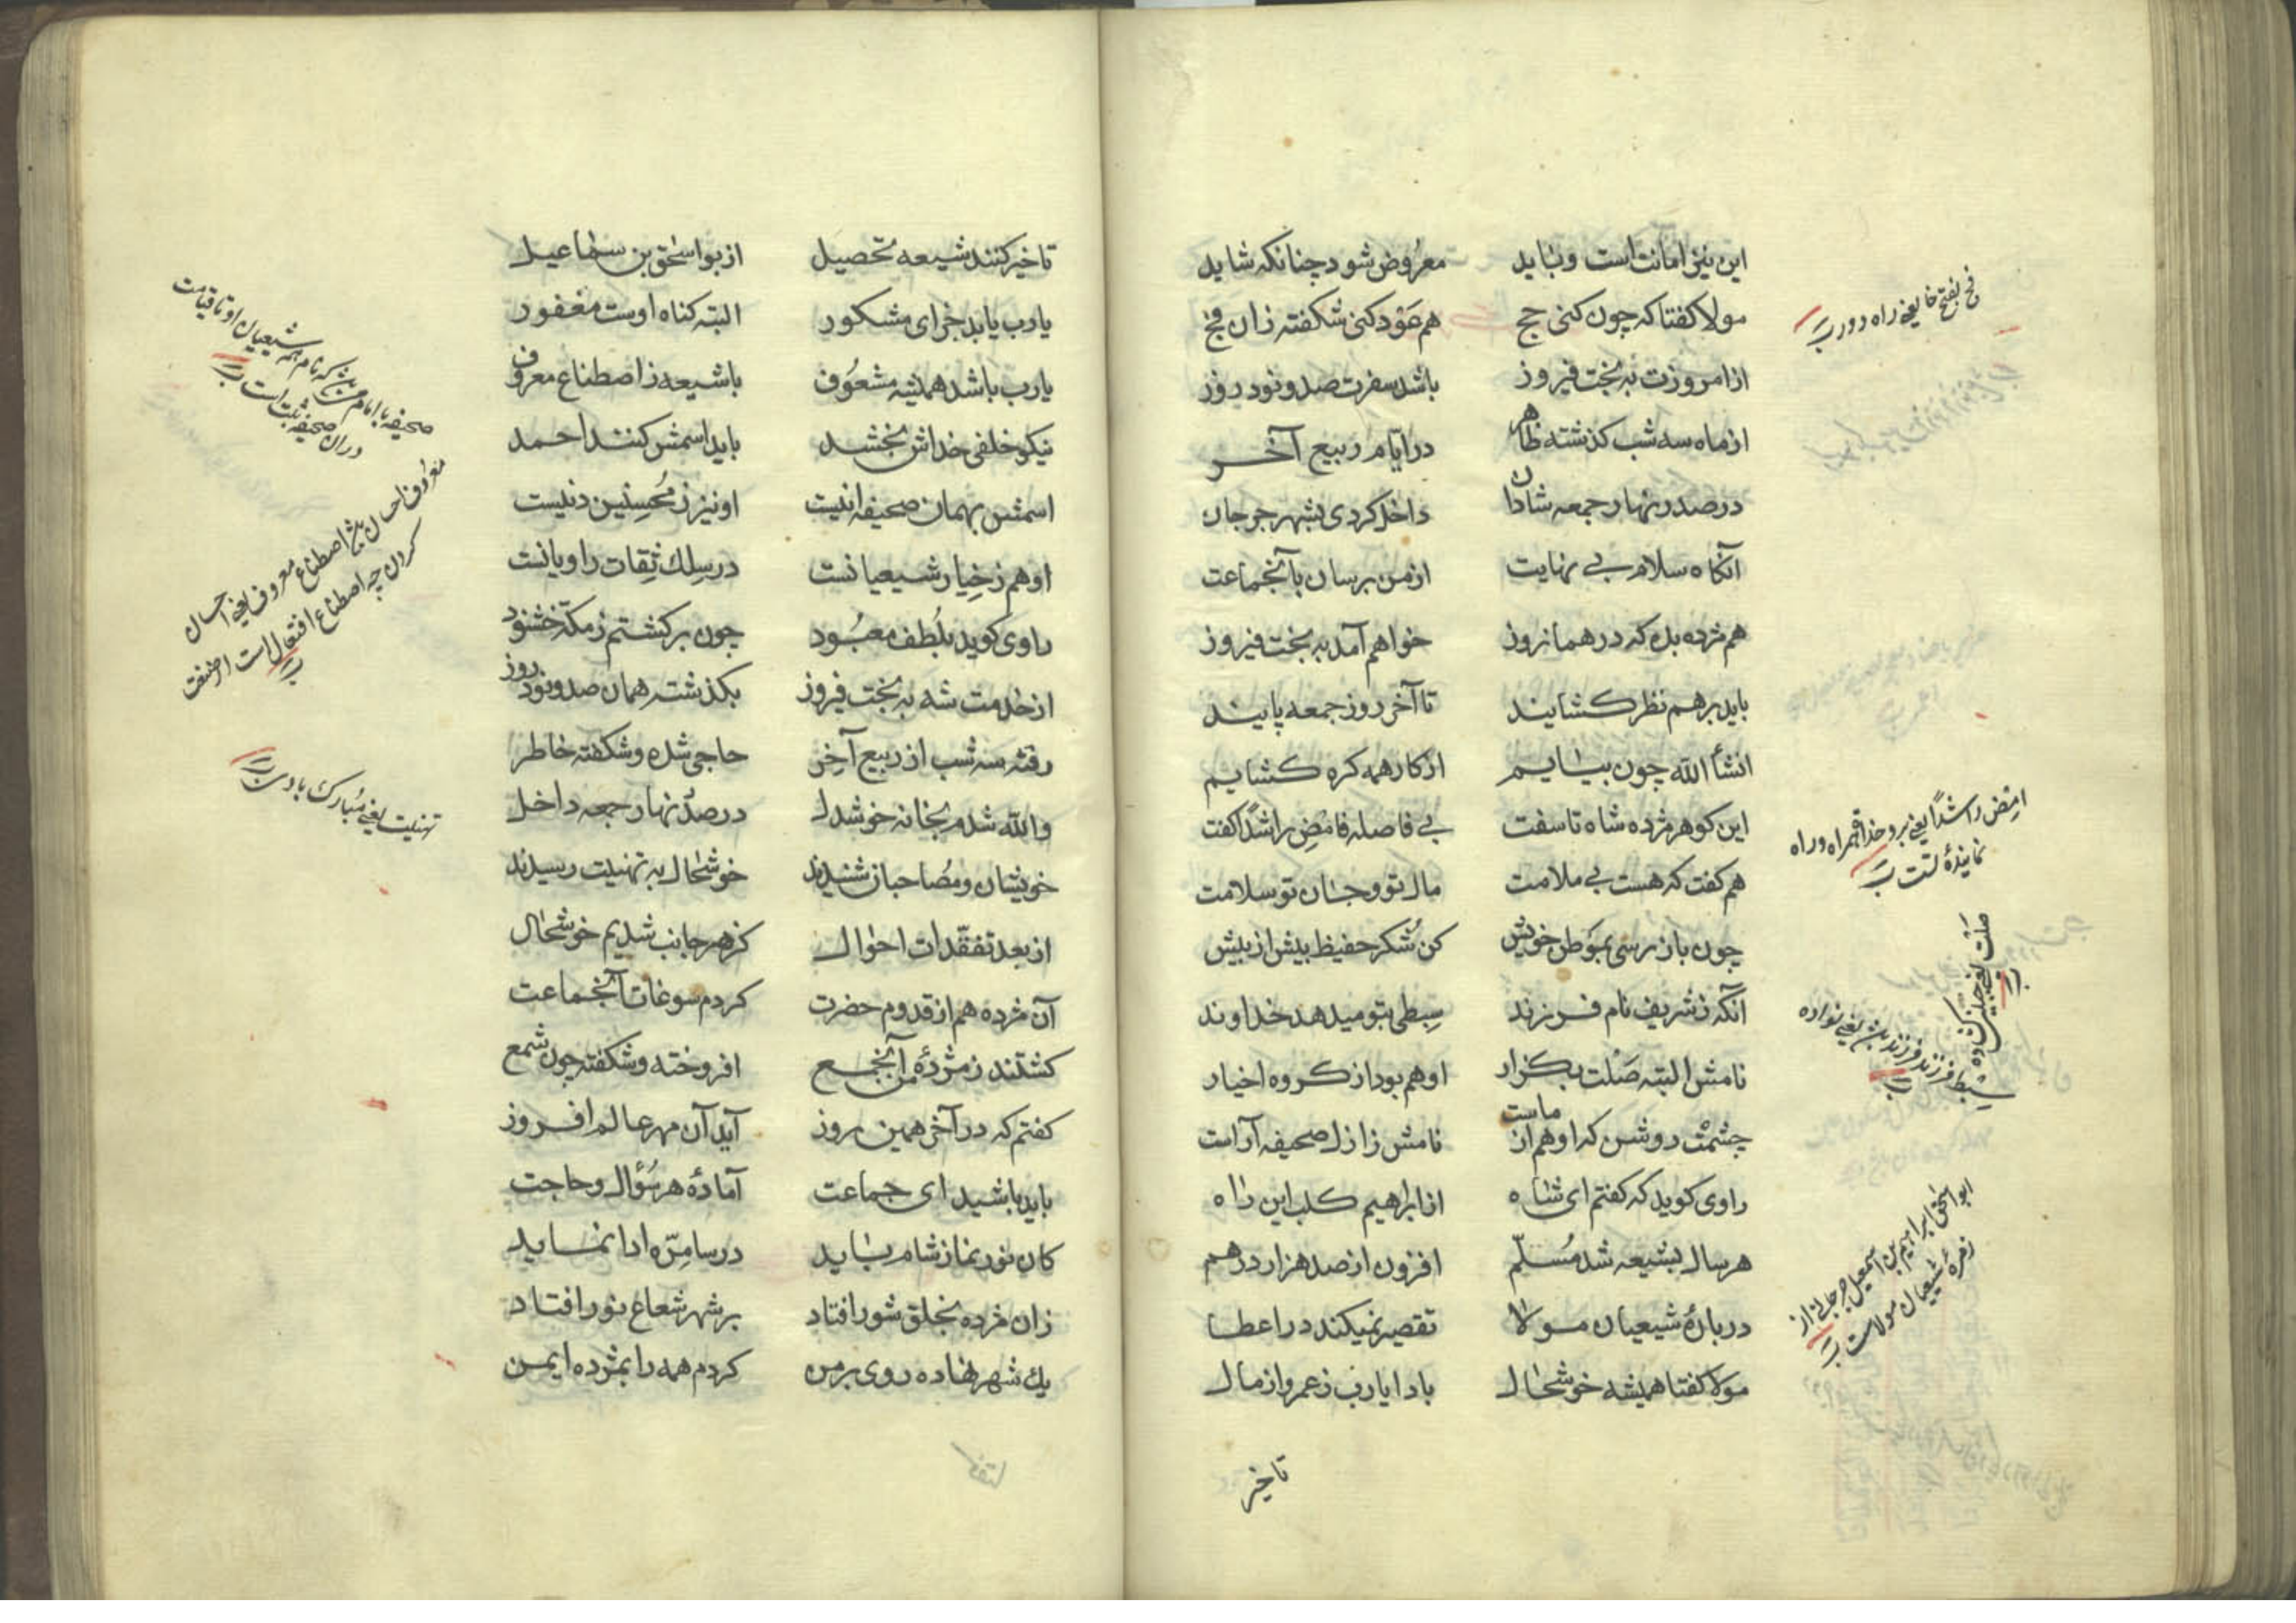 این نیز امانت است و باید معروض شود چنانکه شاید
مولا کفتا که چون کنی حج هم عود کنی شکفته زان فج
از امروزت به بخت فیروز باشد سفرت صد و نود روز
از ماه سه شب کذشته ظاهر در ایام ربیع آخر
در صدر نهار جمعه شادان داخل کردی بشهر جرجان
آنکاه سلام بی نهایت از من برسان بآنجماعت
هم مژده بده که در همانروز خواهم آمد به بخت فیروز
باید بر هم نظر کشایند تا آخر روز جمعه پایند
انشأ الله چون بیایم از کار همه کره کشایم
این کوهر مژده شاه تا سفت بی فاصله فامض راشداً کفت
هم کفت که هست بی ملامت مال تو و جان تو سلامت
چون باز رسی بموطن خویش کن شکر حفیظ بیش از بیش
آنکه ز شریف نام فرزند سبطی بتو میدهد خداوند
نامش البته صلت بکزار او هم بود از کروه اخیار
چشمت روشن که او هم از ماست نامش ز ازل صحیفه آراست
راوی کوید که کفتم ای شاه از ابراهیم کلب این راه
هر سال بشیعه شد مسلّم افزون از صد هزار درهم
در باره شیعیان مولا تقصیر نمیکند در اعطا
مولا کفتا همیشه خوشحال بادا یارب ز عمر و از مال
تا خیر
فج بفتح فا یعنی راه دور
امض راشداً یعنی برو خدا همراه و راه
نماینده تست
صلت یعنی جبین کشاده
سبط فرزند فرزند یعنی نواده
ابو اسحق ابراهیم بن اسمعیل جرجانی از
زمره شیعیان مولاست
تا خیر کنند شیعه تحصیل از بو اسحق بن سماعیل
یارب یابد جزای مشکور البته کناه اوست مغفور
یارب باشد همیشه مشعوف با شیعه ز اصطناع معروف
نیکو خلفی خداش بخشد باید اسمش کنند احمد
اسمش بهمان صحیفه انیت او نیز ز محسنین دنیست
او هم ز خیار شیعیانست در سلک ثقات راویانست
راوی کوید بلطف معبود چون برکشتم ز مکه خشنود
از خدمت شه به بخت فیروز بکذشته همان صد و نود روز
رفته سه شب از ربیع آخر حاجی شده و شکفته خاطر
والله شدم بخانه خوشدل در صدر نهار جمعه داخل
خویشان و مصاحبان شنیدند خوشحال به تهنیت رسیدند
از بعد تفقدات احوال کز هر جانب شدیم خوشحال
آن مژده هم از قدوم حضرت کردم سوغات آنجماعت
کشتند ز مژده من آنجمع افروخته و شکفته چون شمع
کفتم که در آخر همین روز آید آن مهر عالم افروز
باید باشید ای جماعت آماده هر سؤال و حاجت
کان نور نماز شام باید در سامرّه ادا نماید
زان مژده بخلق شور افتاد بر شهر شعاع نور افتاد
یک شهر نهاده روی بر من کردم همه را بمژده ایمن
که نام همه شیعیان او تا قیامت
در ان صحیفه ثبت است
معروف احسان اصطناع معروف یعنی احسان
کردن چه اصطناع افتعال است از صنعت
تهنیت یعنی مبارک باد